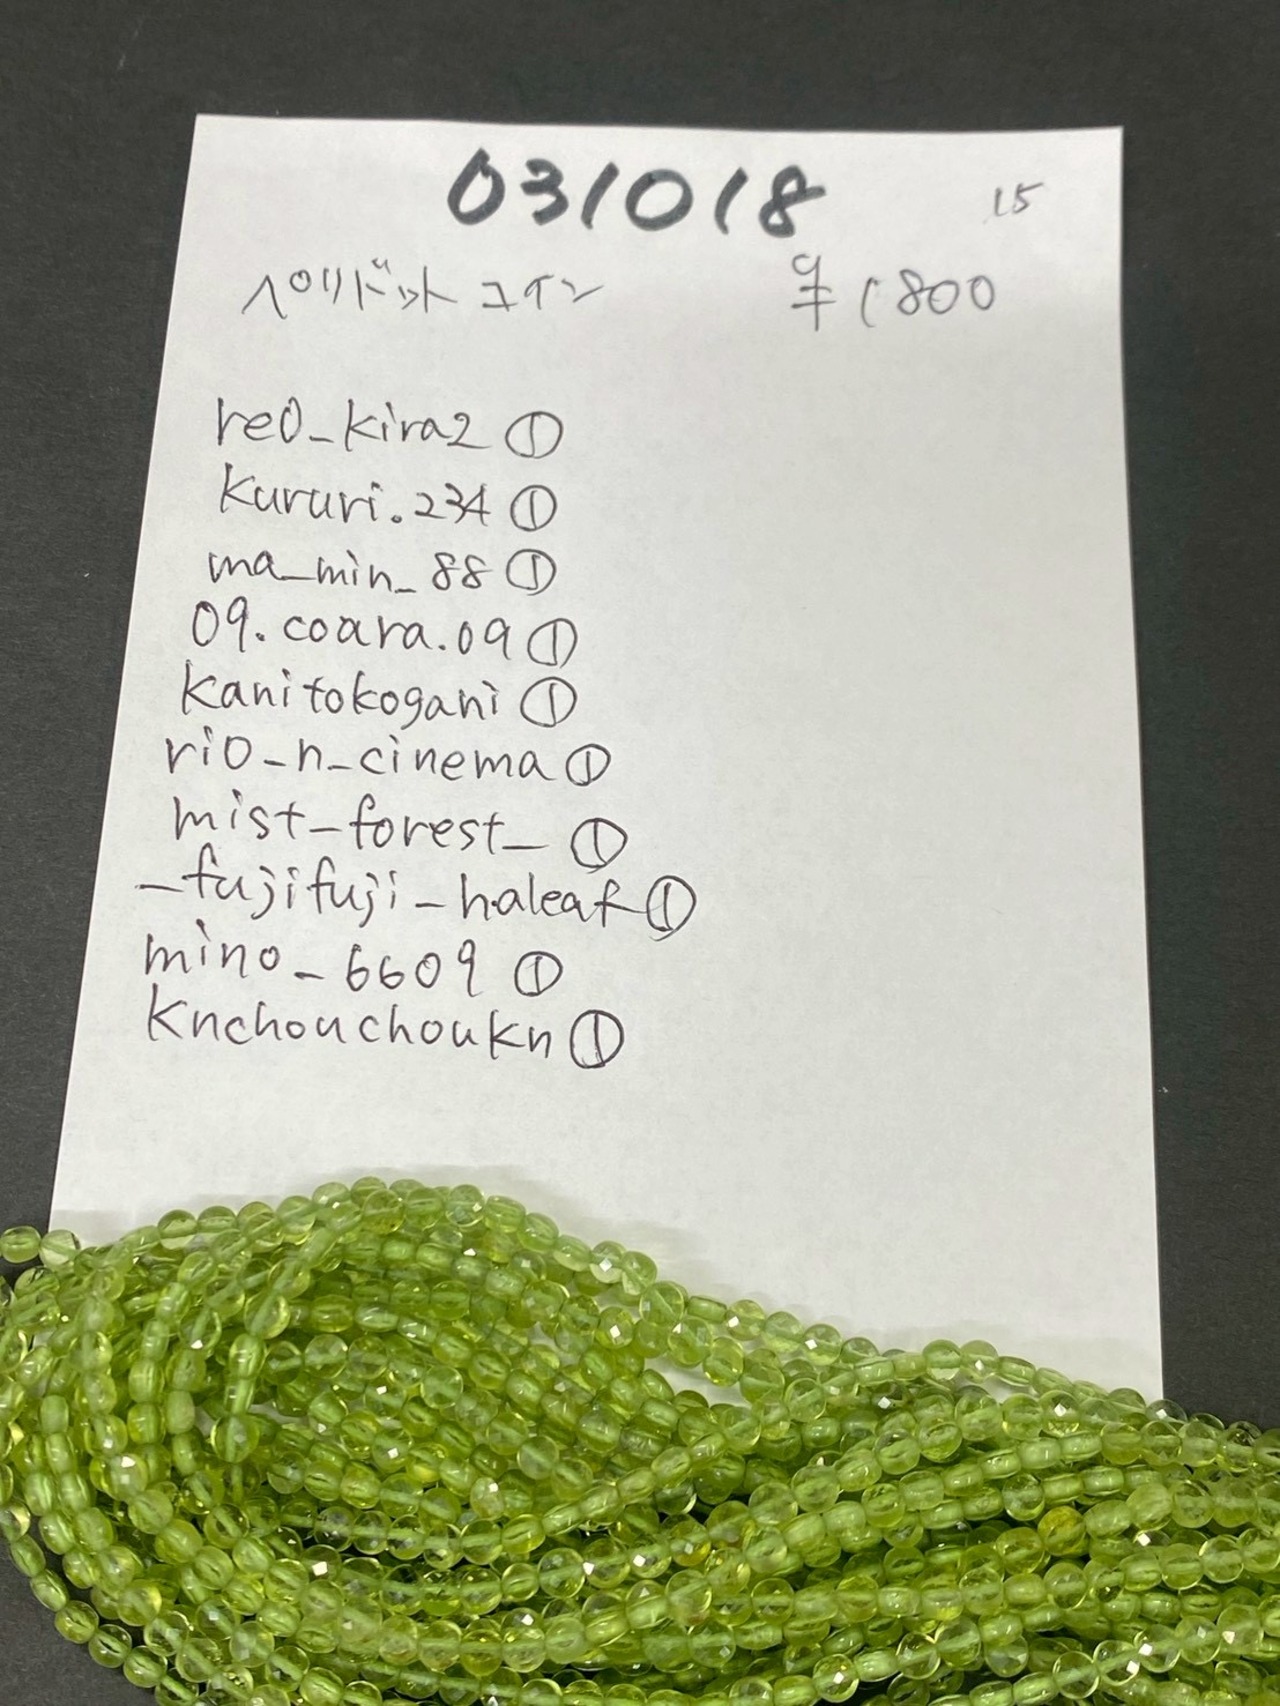 031018 15
ペリドットコイン ¥1800
reo_kira2 ①
kururi.234 ①
ma_min_88 ①
09.coara.09 ①
kanitokogani ①
rio_n_cinema ①
mist_forest_ ①
_fujifuji_haleaf ①
mino_6609 ①
knchouchoukn ①